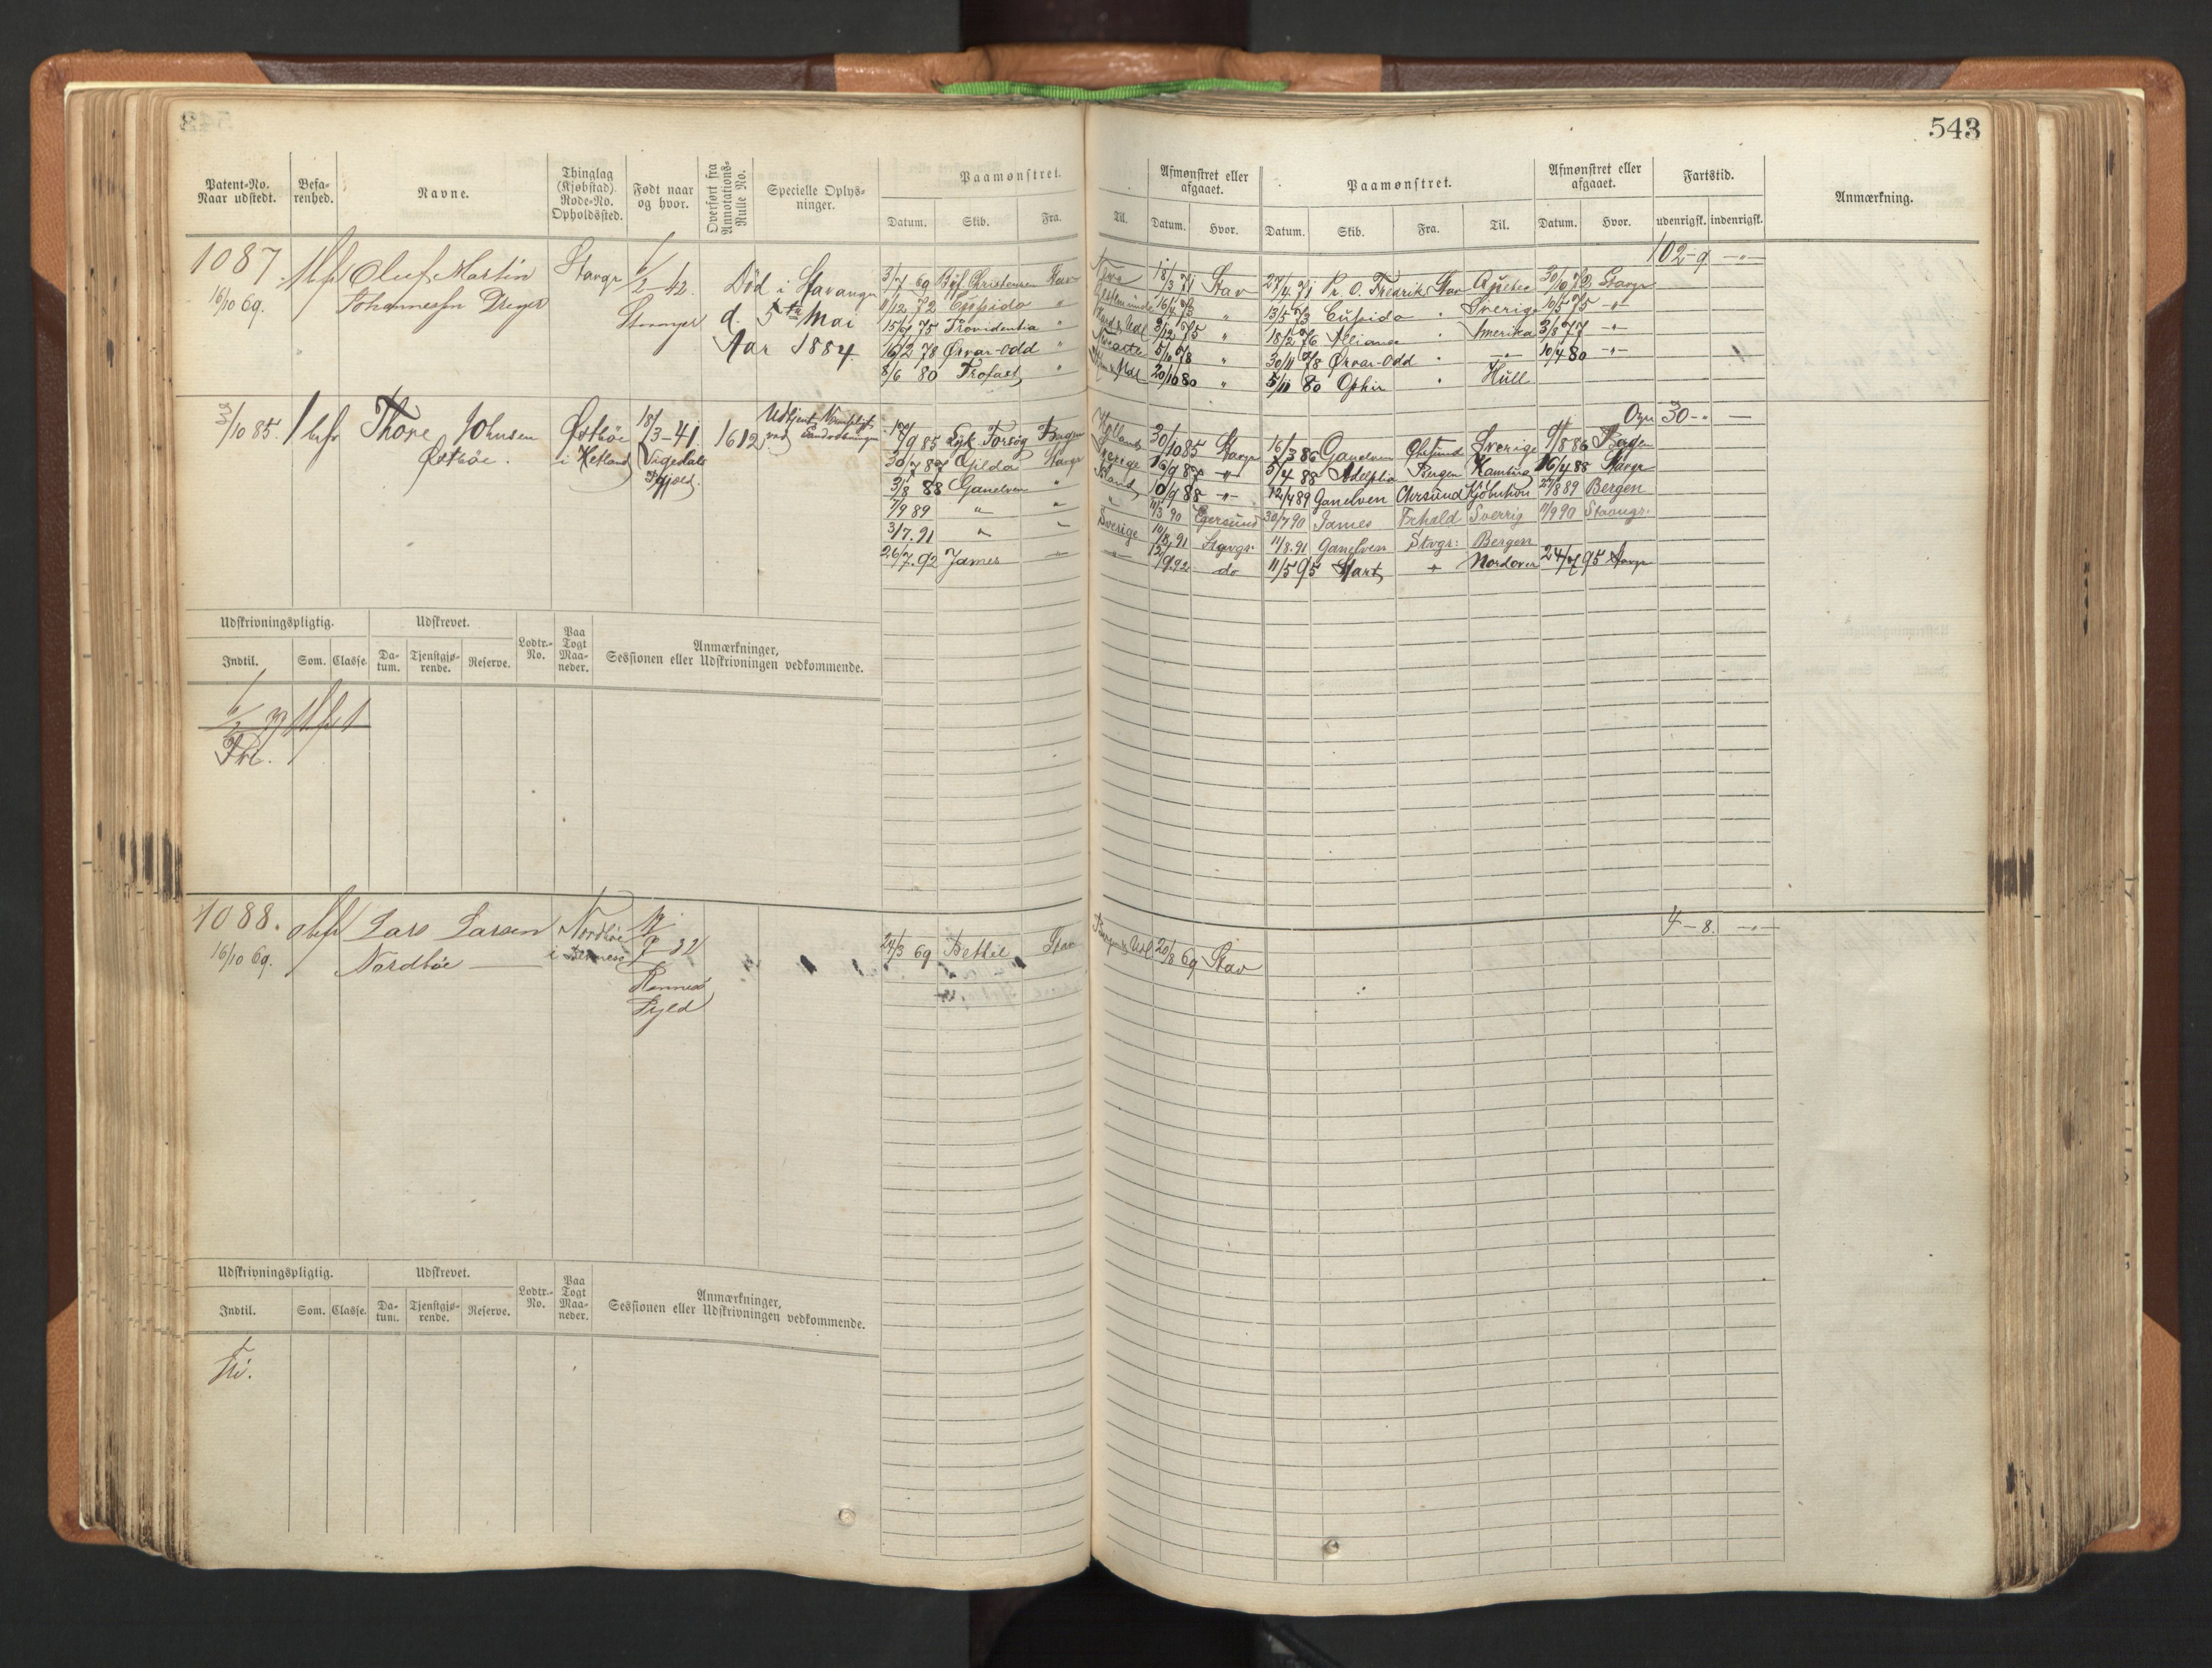 543
Patent-No. Naar udstedt.
Befa-renhed.
Navne.
Thinglag (Kjøbstad). Rode-No. Opholdssted.
Født naar og hvor.
Overført fra Annotations-Rulle No.
Specielle Oplys-ninger.
Paamønstret.
Datum. Skib. Fra. Til.
Afmønstret eller afgaaet.
Datum. Hvor.
Paamønstret.
Datum. Skib. Fra. Til.
Afmønstret eller afgaaet.
Datum. Hvor.
Fartstid.
udenrigsk. indenrigsk.
Anmærkning.
1087. Oluf Martin Stavgr 6/2-42. Død i Stavanger
16/10 69. Johannessn Dreyer Stavanger d. 5te Mai
Aar 1884
102-9 -"-
3/7 69 Christensen Stav 18/3 71 Stav 27/4 71 Pr. O. Fredrik Stav 30/10 72 Stavgr
11/12 72 Cupido " 16/4 73 " 13/5 73 Cupido " Sverige 10/5 75 -"-
15/6 75 Providentia " 3/12 75 " 18/2 76 Alliance " Amerika 3/8 77 -"-
16/2 78 Ørvar-Odd " 5/10 78 " 30/11 78 Ørvar-Odd " -"- 10/4 80 -"-
8/6 80 Trofast " 20/10 80 " 5/11 80 Ophir " Hull
3/10 85. 1 bef Thore Johnsen Østbøe 18/3-41. 1612.
Østbøe. i Hetland Vigedals
30-" -
7/9 85 Forsøg Bergen Holland 30/10 85 Stavgr 16/3 86 Ganelven Sverige 9/8 86 Bergen
30/7 87 Gilda Stavgr Sverige 16/9 87 -"- 5/4 88 Adelphia Bergen Hamburg 16/4 88 Stavgr
3/8 88 Ganelven " Island 10/9 88 -"- 12/4 89 Ganelven 27/8 89 Bergen
7/9 89 " " " 11/3 90 Egersund 30/7 90 James Sverrig 11/9 90 Stavngr.
3/7.91 " " Sverige 10/8.91 Stavgr. 11/8.91 Ganelven Stvgr: Bergen
26/7.92 James -"- -"- 12/9.92 do 11/5 95 Start Nordover 24/7 95 Stavgr
Udskrivningspligtig.
Indtil. Som. Classe.
Udskrevet.
Da-tum. Tjenstgjø-rende. Reserve.
Lodtr.-No.
Paa Togt Maa-neder.
Anmærkninger, Sessionen eller Udskrivningen vedkommende.
1088. Lars Larsen Nordbøe 7-32
16/10 69. Nordbøe
Rennesø
24/3 69 Bethel Stav 20/8 69 Stav
4-8. -"-
Udskrivningspligtig.
Indtil. Som. Classe.
Udskrevet.
Da-tum. Tjenstgjø-rende. Reserve.
Lodtr.-No.
Paa Togt Maa-neder.
Anmærkninger, Sessionen eller Udskrivningen vedkommende.
Fri.